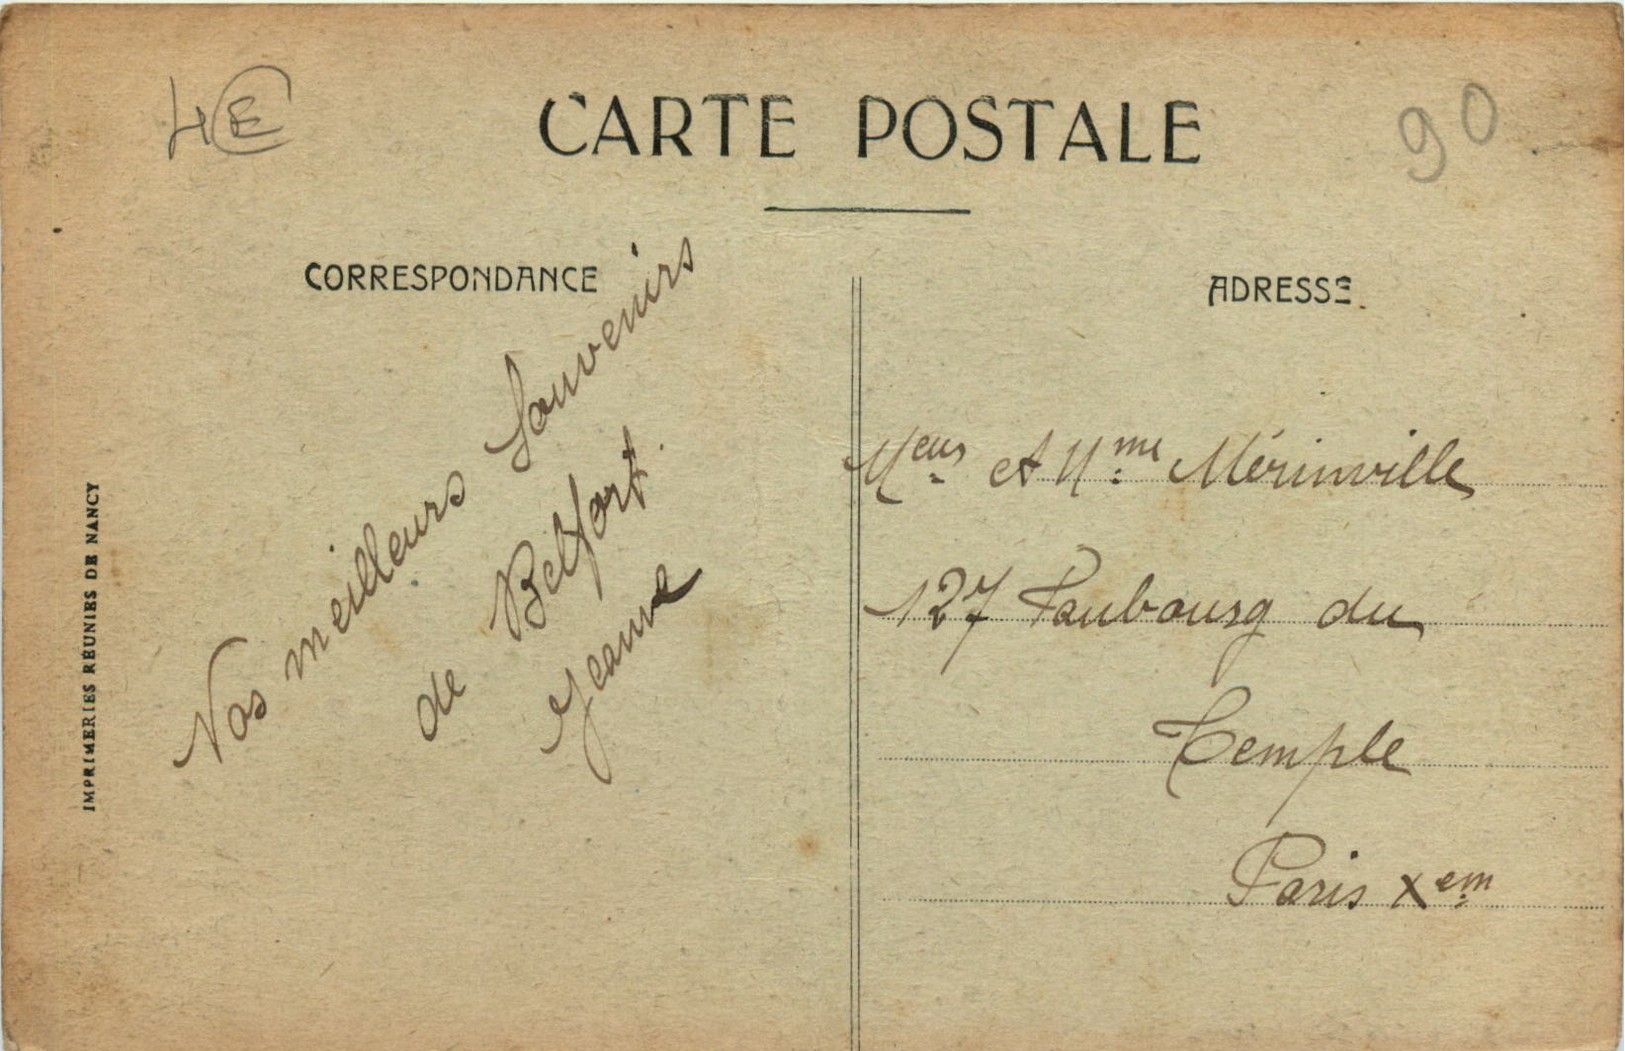 4E
CARTE POSTALE
90
CORRESPONDANCE
Nos meilleurs Souvenirs
de Belfort.
Jeanne
IMPRIMERIES RÉUNIES DE NANCY
ADRESSE
Meus et Mme Mérinville
127 Faubourg du
Temple
Paris Xem